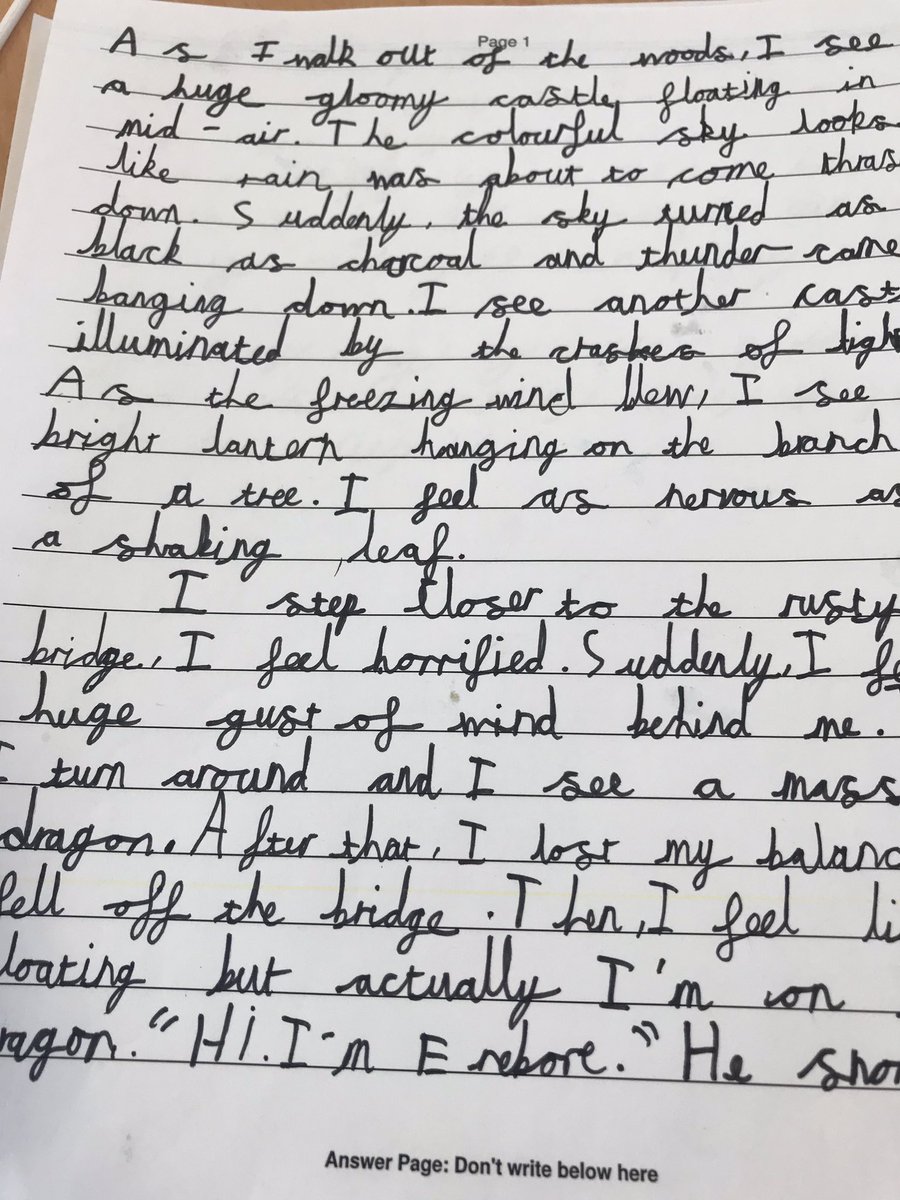 Page 1
As I walk out of the woods, I see
a huge gloomy castle, floating in
mid-air. The colourful sky looks
like rain was about to come thras
down. Suddenly, the sky turned as
black as charcoal and thunder came
banging down. I see another cast
illuminated by the crashes of ligh
As the freezing wind blew, I see
bright lantern hanging on the branch
of a tree. I feel as nervous as
a shaking leaf.
I step closer to the rusty
bridge, I feel horrified. Suddenly, I fe
huge gust of wind behind me.
I turn around and I see a mass
dragon. After that, I lost my balanc
fell off the bridge. Then, I feel li
loating but actually I'm on
ragon. "Hi. I'm Erebore." He sno
Answer Page: Don't write below here